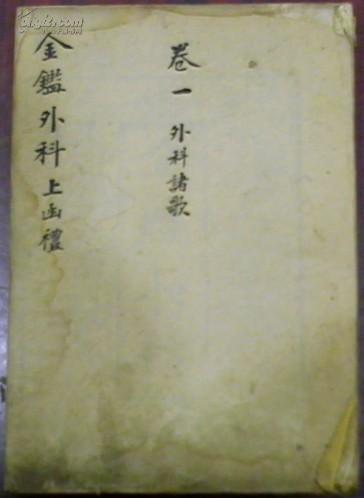 卷一 外科諸歌
金鑑外科上函禮